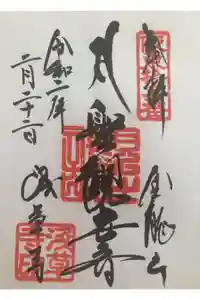 奉拝
金龍山
聖観音
令和二年
二月二十二日
浅草寺
浅草寺